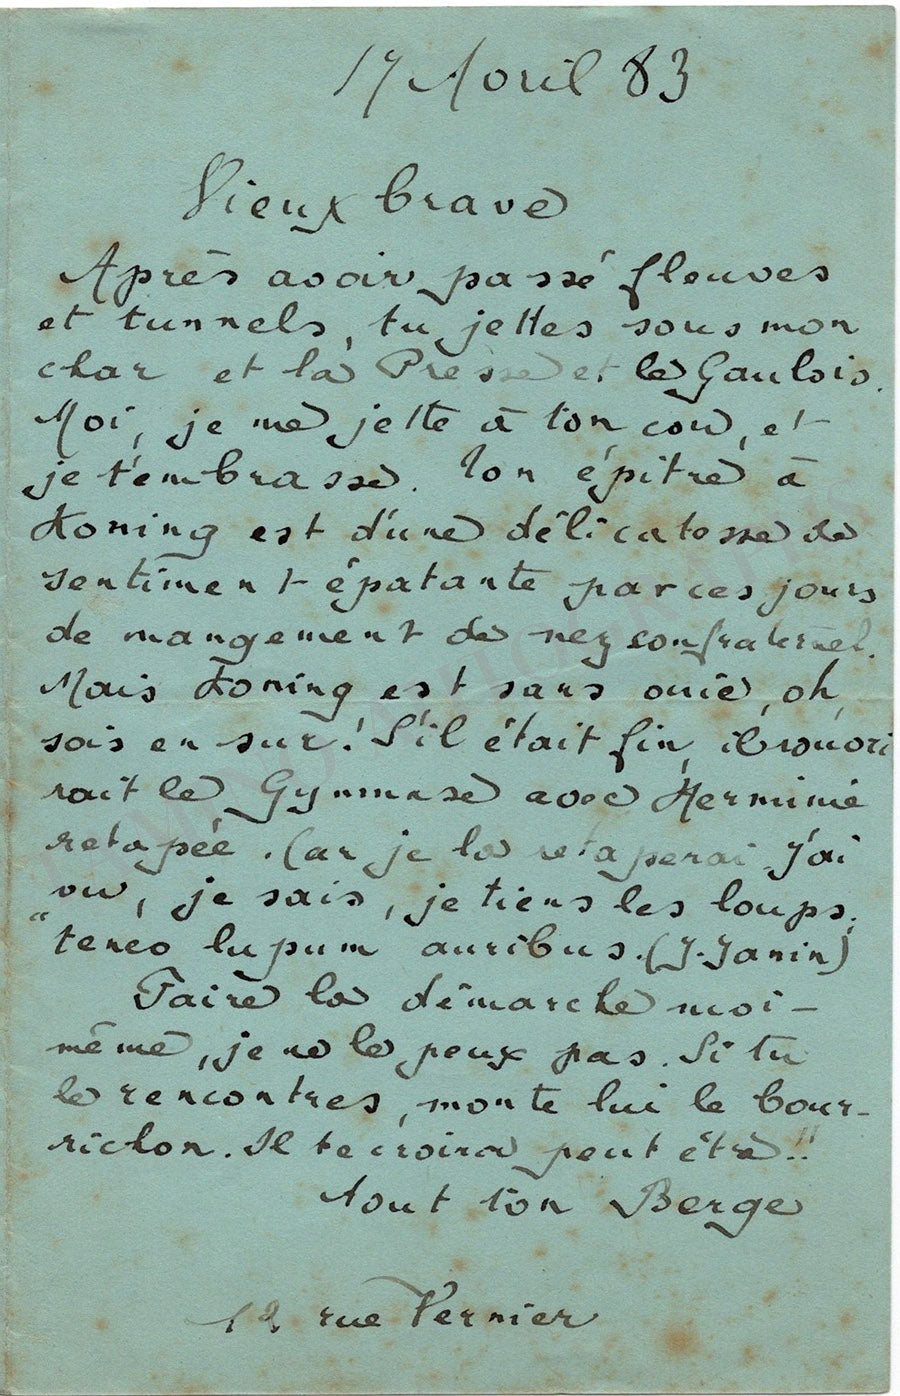 17 Avril 83
Vieux brave
Après avoir passé fleuves
et tunnels, tu jettes sous mon
char et la Presse et le Gaulois.
Moi, je me jette à ton cou, et
je t'embrasse. Ton épitre à
Koning est d'une délicatesse de
sentiment épatante par ces jours
de mangement de nez confraternel.
Mais Koning est sans ouïe, oh,
sois en sur! S'il était fin, il rouvri
rait le Gymnase avec Herminie
retapée. Car je la retaperai. J'ai
vu, je sais, je tiens les loups,
"teneo lupum auribus. (J. Janin)
Faire la démarche moi-
même, je ne le peux pas. Si tu
le rencontres, monte lui le bour-
richon. Il te croira peut être!!
Tout ton Berge
rue Vernier